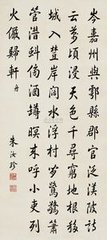 岑嘉州與鄠縣郡官泛渼陂詩
云萬頃浸天色千尋窮地根移
城入樹岸闊水浮村閒鷺驚簫
管潛虯傍酒罇暝來呼小吏列
火儼歸軒 舟
朱汝珍